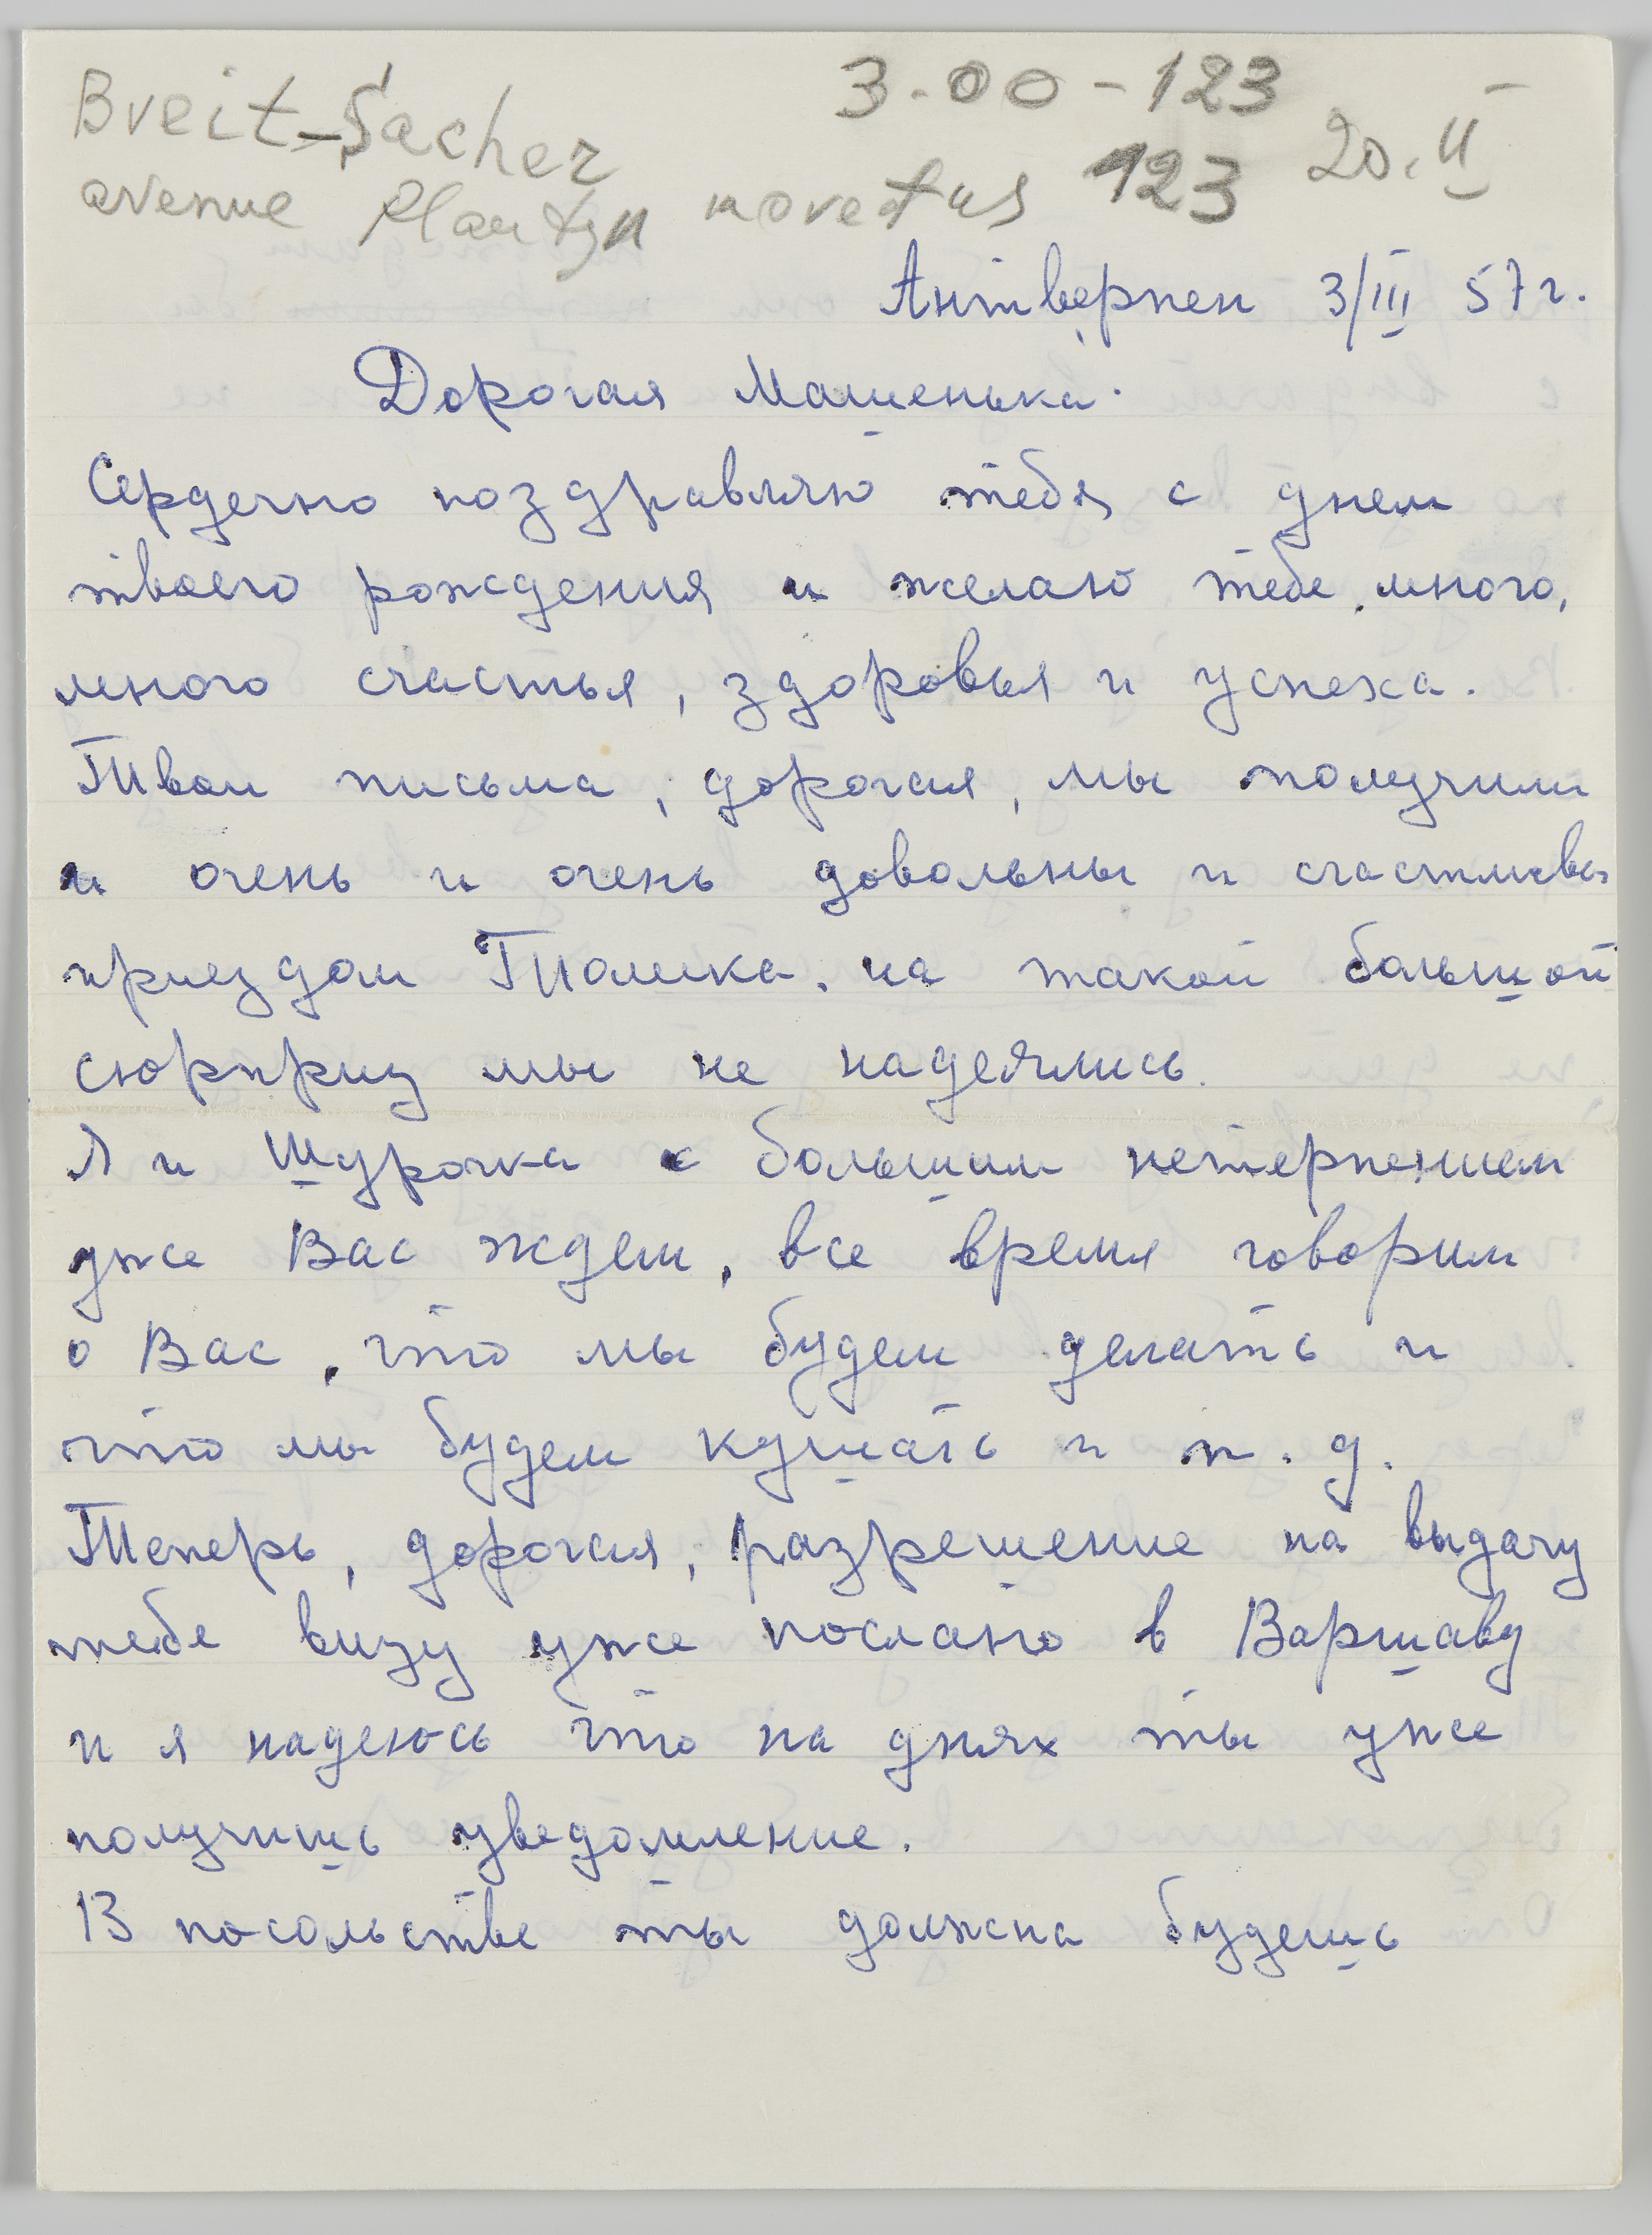 Breit-Sacher 3.00-123
avenue Plantyn moretus 123 20.II
Антверпен 3/III 57 г.
Дорогая Машенька.
Сердечно поздравляю тебя с днем
твоего рождения и желаю тебе много,
много счастья, здоровья и успеха.
Твои письма, дорогая, мы получили
и очень и очень довольны и счастливы
приездом Томика, на такой большой
сюрприз мы не надеялись.
Я и Шурочка с большим нетерпением
уже Вас ждем, все время говорим
о Вас, что мы будем делать и
что мы будем кушать и т. д.
Теперь, дорогая, разрешение на выдачу
тебе визу уже послано в Варшаву
и я надеюсь что на днях ты уже
получишь уведомление.
В посольстве ты должна будешь